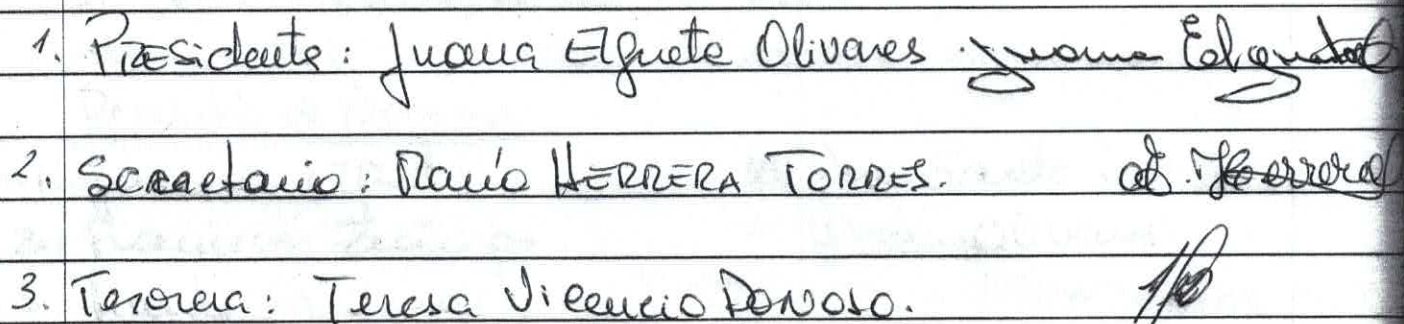 1. Presidente: Juana Elgueta Olivares. Juana Elgueta
2. Secretario: Mario HERRERA TORRES. Herrera
3. Tesorera: Teresa Vicencio Donoso.